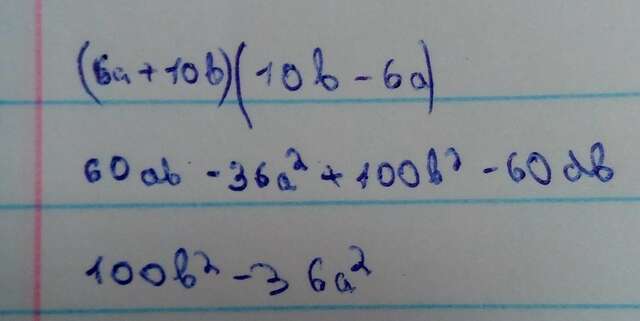 (6a+10b)(10b-6a)
60ab-36a²+100b²-60ab
100b²-36a²